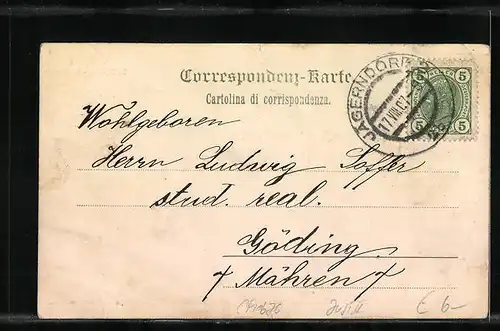 Correspondenz-Karte
Cartolina di corrispondenza.
JÄGERNDORF
5 5
5 5
Wohlgeboren
Herrn Ludwig Soffer
stud. real.
Göding
Mähren
€ 6-